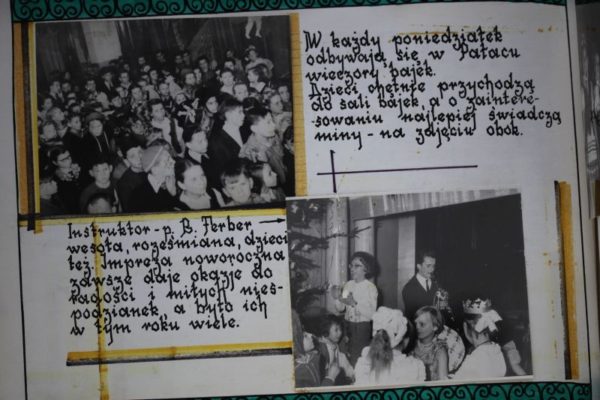 W każdy poniedziałek
odbywają się w Pałacu
wieczory bajek.
Dzieci chętnie przychodzą
do sali bajek, a o zaintere-
sowaniu najlepiej świadczą
miny - na zdjęciu obok.
Instruktor - p. B. Ferber
wesoła, roześmiana, dzieci
też. Impreza noworoczna
zawsze daje okazję do
radości i miłych nies-
podzianek, a było ich
w tym roku wiele.